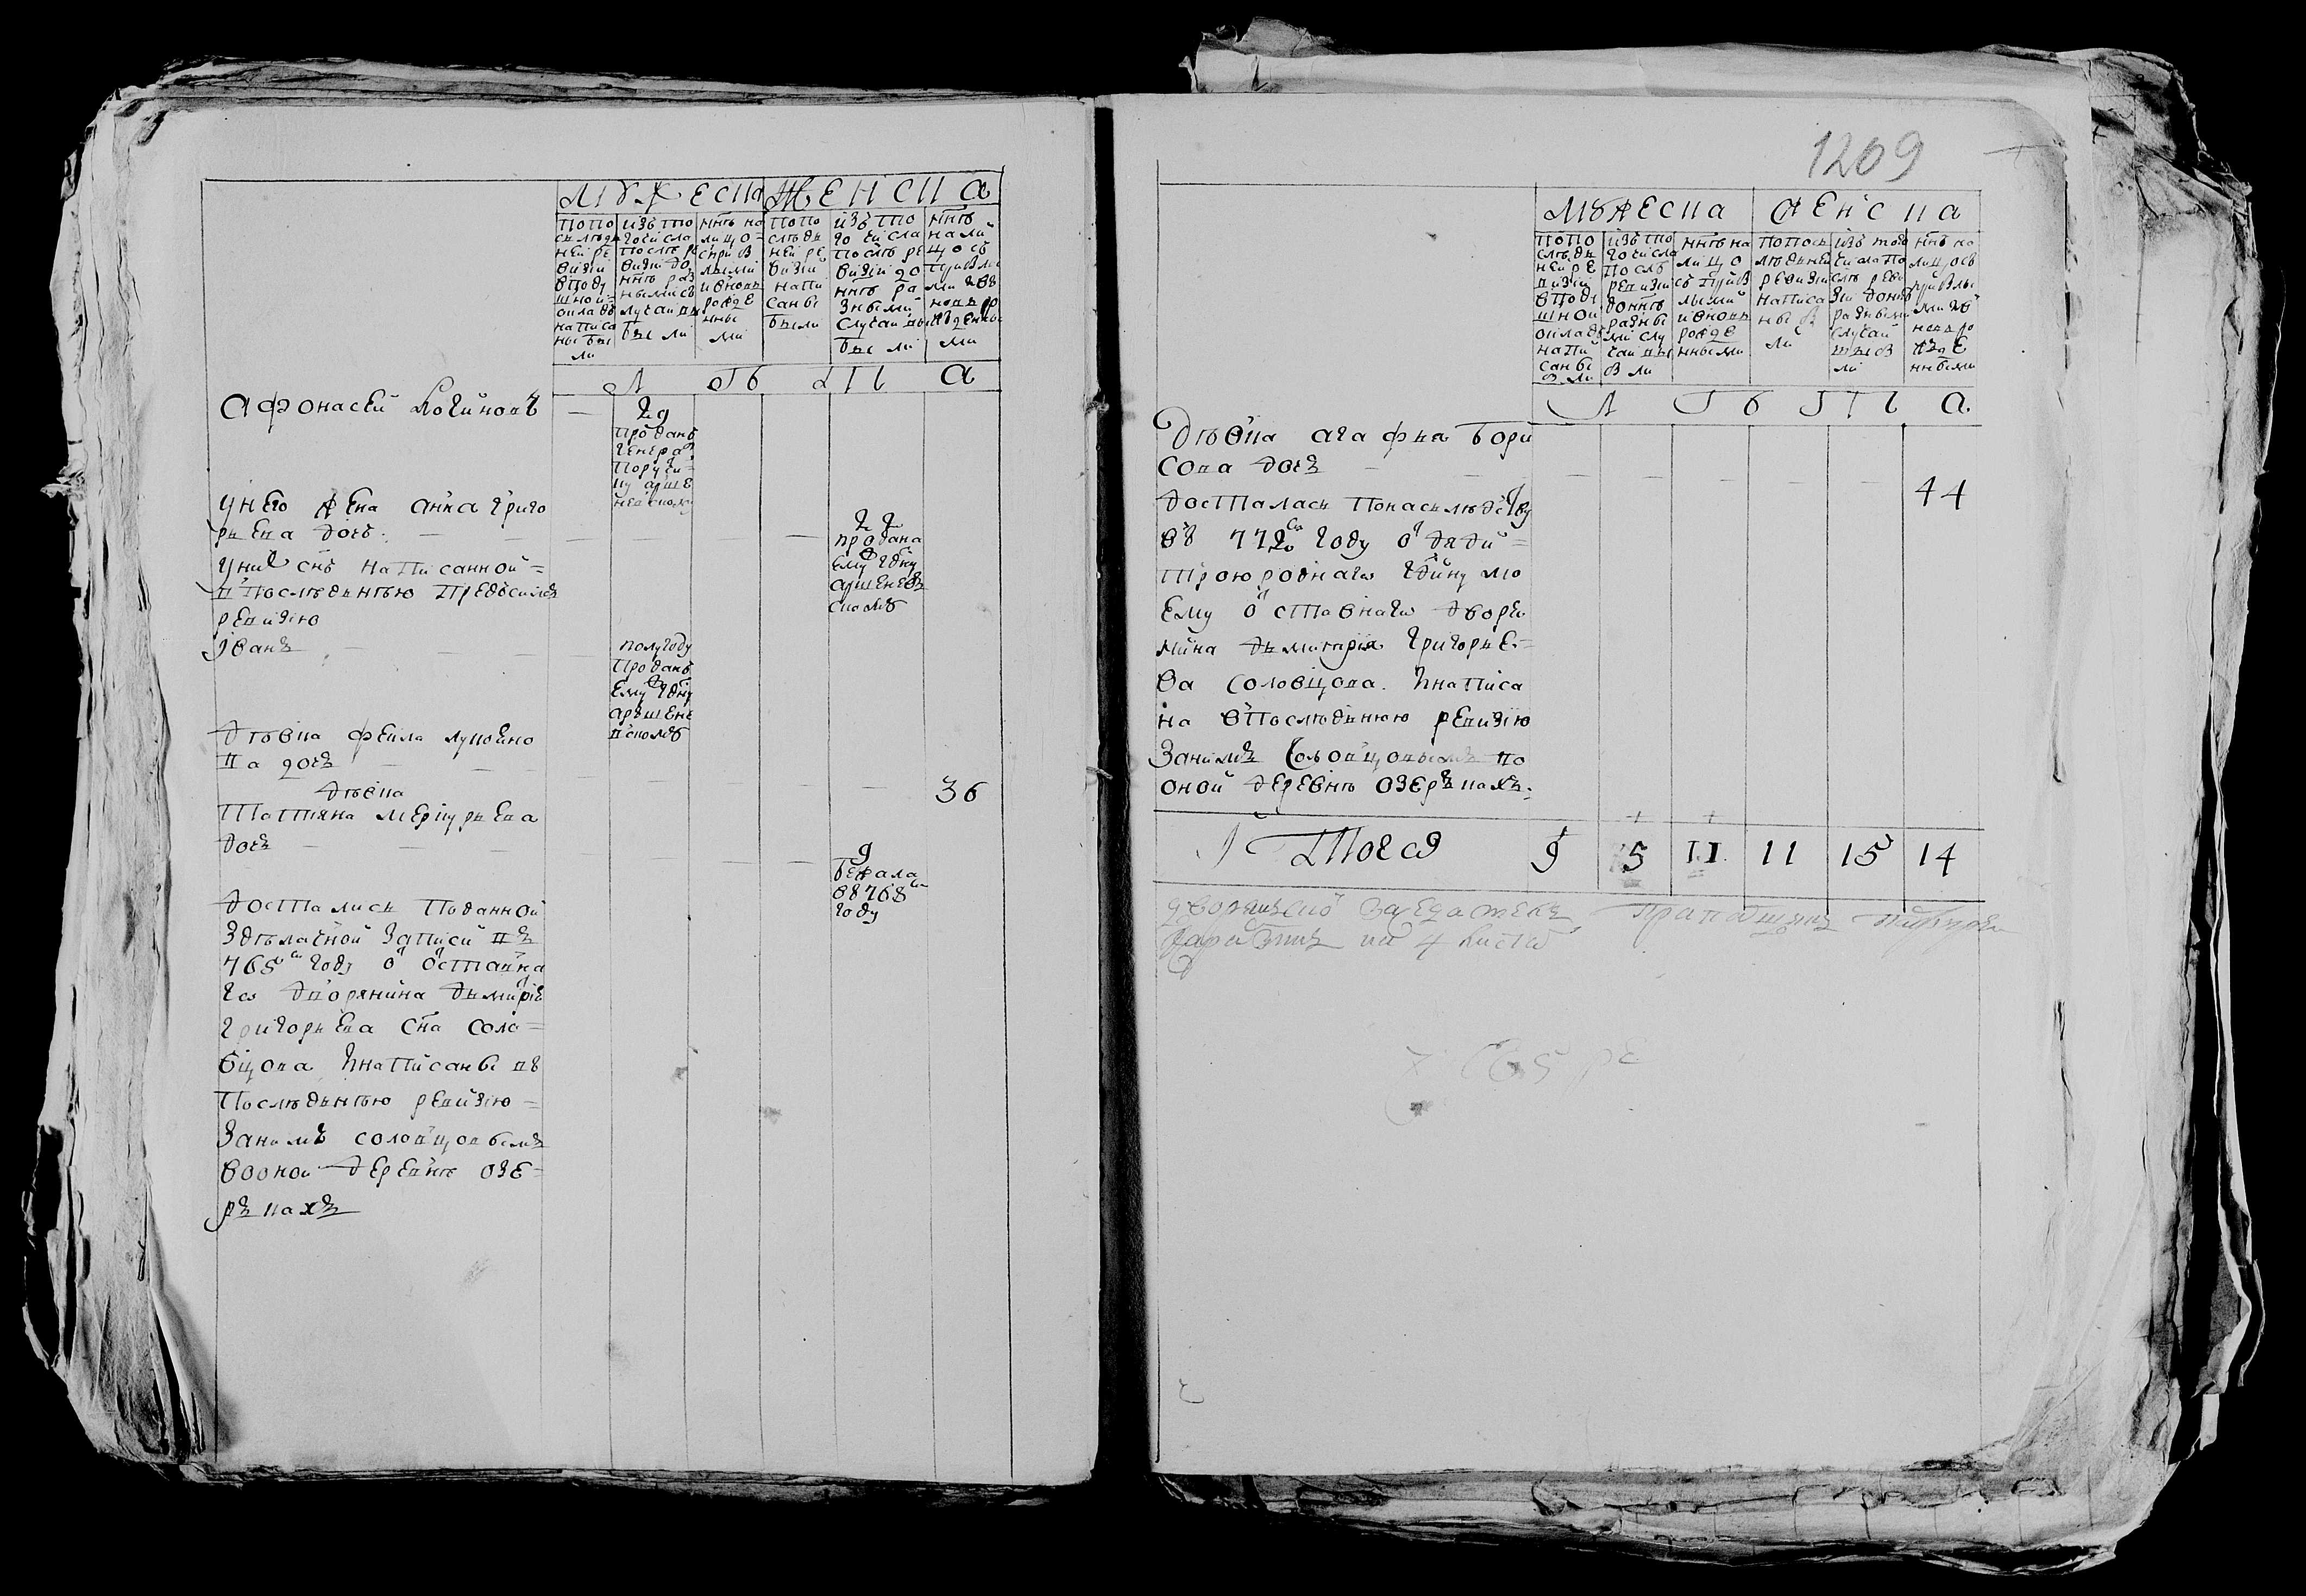 Мужеска Женска
По по следней ревизии в подушной оклад написаны были
Из того числа после ревизии до ныне разными случаи выбыли
Ныне на лицо с прибылыми и вновь рожденными
По последней ревизии написаны были
Из того числа после ревизии до ныне разными случаи выбыли
Ныне на лицо с прибылыми и вновь рожденными
Л ѣ т а
Афонасей Логиновъ — 29
проданъ
генера
поручи
ку арше
невскому
У него жена анна григо
рьева дочь — — — — 22
продана
ему гдну
аршенев
скомъ
У них снъ написанной
в последнюю пред симъ
ревизию
Иванъ — — — полугоду
проданъ
ему гдну
аршене
вскомъ
Девка фекла лукоино
ва дочь — — — — 36
девка
Татияна меркурьева
дочь — — — — 9
бежала
в 768м
году
Достались по данной
зделашной записи въ
768м году о оставна
го дворянина дьмитрия
григорьева сна соло
вцова и написаны въ
последнюю ревизию
за нимъ соловцовымъ
в оной деревне озе
ркахъ
1209
Мужеска Женска
По последней ревизии в подушной окладъ написаны были
Из того числа после ревизии до ныне разными случаи выбыли
Ныне на лицо с прибылыми и вновь рожденными
По последней ревизии написаны были
Из того числа после ревизии до ныне разными случаи выбыли
Ныне на лицо с прибылыми и вновь рожденными
Л ѣ т а
Девка агафья бори
сова дочь — — — — 44
досталась по наследству
въ 772м году о дяди
троюроднаго гдину мо
ему оставнаго дворя
нина дьмитрия григорье
ва соловцова и написа
на в последнюю ревизию
за нимъ соловцовымъ по
оной деревне озеркахъ
Итого 9 5 11 11 15 14
на 4 листа